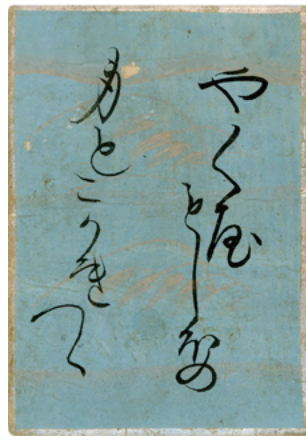 やくや
もしほの
身もこかれ
つゝ